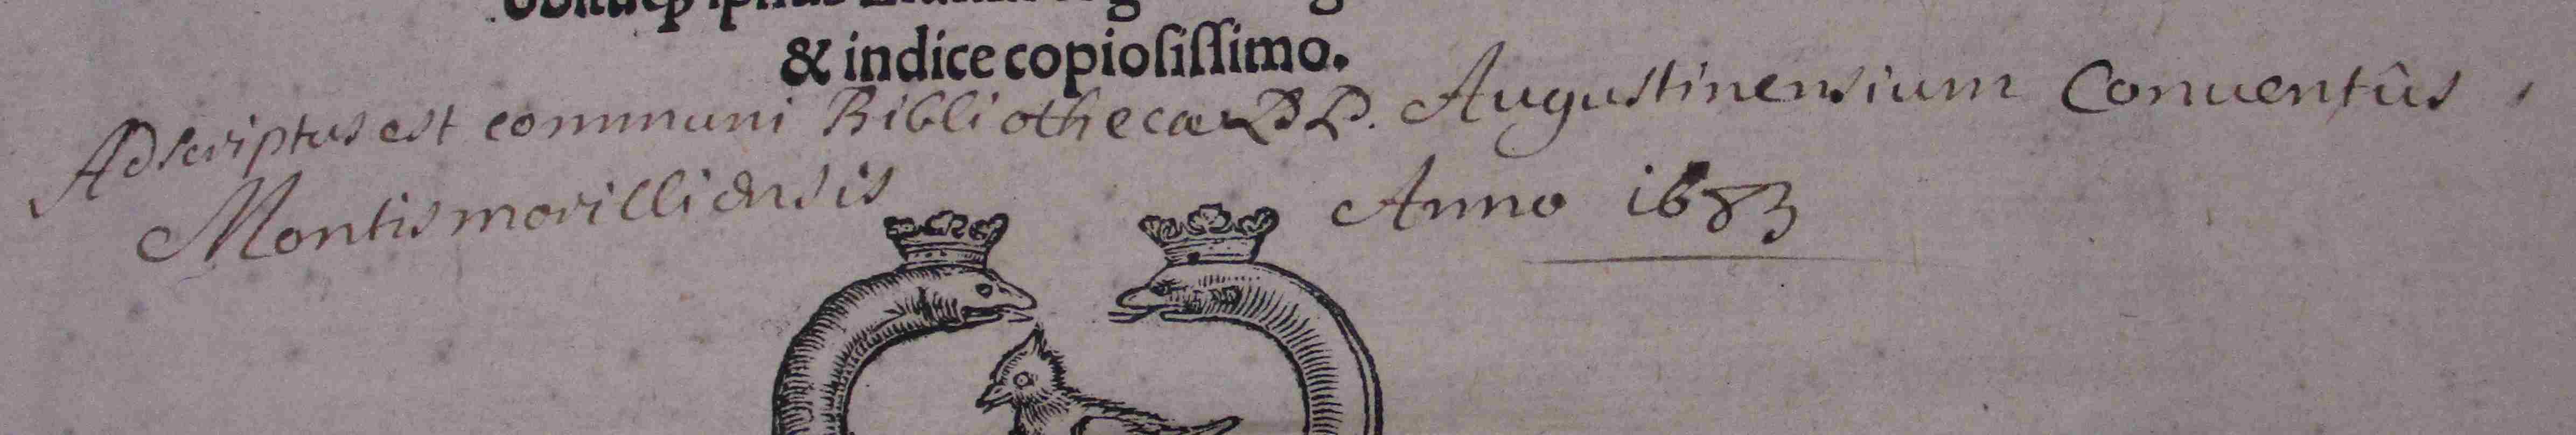 & indice copiosissimo.
Adscriptus est communi Bibliothecæ PP. Augustinensium Conuentûs
Montismorilliensis Anno 1683